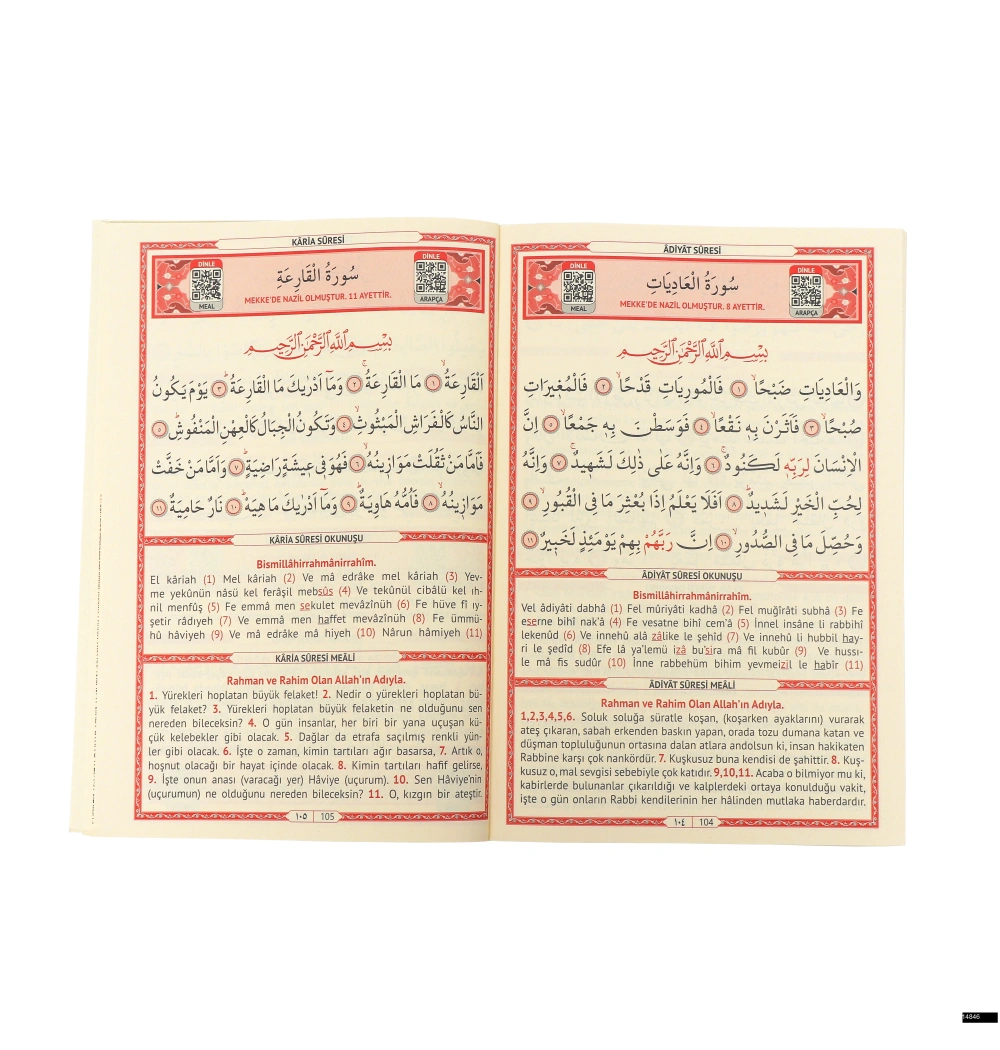 ÂDİYÂT SÛRESİ
DİNLE
MEAL
سُورَةُ الْعَادِيَاتِ
MEKKE'DE NAZİL OLMUŞTUR. 8 AYETTİR.
DİNLE
ARAPÇA
بِسْمِ اللَّهِ الرَّحْمَنِ الرَّحِيمِ
وَالْعَادِيَاتِ ضَبْحًاۙ ﴿١﴾ فَالْمُورِيَاتِ قَدْحًاۙ ﴿٢﴾ فَالْمُغ۪يرَاتِ
صُبْحًاۙ ﴿٣﴾ فَاَثَرْنَ بِه۪ نَقْعًاۙ ﴿٤﴾ فَوَسَطْنَ بِه۪ جَمْعًاۙ ﴿٥﴾ اِنَّ
الْاِنْسَانَ لِرَبِّه۪ لَكَنُودٌۚ ﴿٦﴾ وَاِنَّهُ عَلٰى ذٰلِكَ لَشَه۪يدٌۚ ﴿٧﴾ وَاِنَّهُ
لِحُبِّ الْخَيْرِ لَشَد۪يدٌۜ ﴿٨﴾ اَفَلَا يَعْلَمُ اِذَا بُعْثِرَ مَا فِي الْقُبُورِۙ ﴿٩﴾
وَحُصِّلَ مَا فِي الصُّدُورِۙ ﴿١٠﴾ اِنَّ رَبَّهُمْ بِهِمْ يَوْمَئِذٍ لَخَب۪يرٌ ﴿١١﴾
ÂDİYÂT SÛRESİ OKUNUŞU
Bismillâhirrahmânirrahîm.
Vel âdiyâti dabhâ (1) Fel mûriyâti kadhâ (2) Fel muğîrâti subhâ (3) Fe
eserne bihî nak'â (4) Fe vesatne bihî cem'â (5) İnnel insâne li rabbihî
lekenûd (6) Ve innehû alâ zâlike le şehîd (7) Ve innehû li hubbil hay-
ri le şedîd (8) Efe lâ ya'lemü izâ bu'sira mâ fil kubûr (9) Ve hussı-
le mâ fis sudûr (10) İnne rabbehüm bihim yevmeizil le habîr (11)
ÂDİYÂT SÛRESİ MEÂLİ
Rahman ve Rahim Olan Allah'ın Adıyla.
1,2,3,4,5,6. Soluk soluğa süratle koşan, (koşarken ayaklarını) vurarak
ateş çıkaran, sabah erkenden baskın yapan, orada tozu dumana katan ve
düşman topluluğunun ortasına dalan atlara andolsun ki, insan hakikaten
Rabbine karşı çok nankördür. 7. Kuşkusuz buna kendisi de şahittir. 8. Kuş-
kusuz o, mal sevgisi sebebiyle çok katıdır. 9,10,11. Acaba o bilmiyor mu ki,
kabirlerde bulunanlar çıkarıldığı ve kalplerdeki ortaya konulduğu vakit,
işte o gün onların Rabbi kendilerinin her hâlinden mutlaka haberdardır.
١٠٤ 104
KÂRİA SÛRESİ
DİNLE
MEAL
سُورَةُ الْقَارِعَةِ
MEKKE'DE NAZİL OLMUŞTUR. 11 AYETTİR.
DİNLE
ARAPÇA
بِسْمِ اللَّهِ الرَّحْمَنِ الرَّحِيمِ
اَلْقَارِعَةُۙ ﴿١﴾ مَا الْقَارِعَةُۚ ﴿٢﴾ وَمَٓا اَدْرٰيكَ مَا الْقَارِعَةُۜ ﴿٣﴾ يَوْمَ يَكُونُ
النَّاسُ كَالْفَرَاشِ الْمَبْثُوثِۙ ﴿٤﴾ وَتَكُونُ الْجِبَالُ كَالْعِهْنِ الْمَنْفُوشِۜ ﴿٥﴾
فَاَمَّا مَنْ ثَقُلَتْ مَوَاز۪ينُهُۙ ﴿٦﴾ فَهُوَ ف۪ي ع۪يشَةٍ رَاضِيَةٍۜ ﴿٧﴾ وَاَمَّا مَنْ خَفَّتْ
مَوَاز۪ينُهُۙ ﴿٨﴾ فَاُمُّهُ هَاوِيَةٌۜ ﴿٩﴾ وَمَٓا اَدْرٰيكَ مَا هِيَهْۜ ﴿١٠﴾ نَارٌ حَامِيَةٌ ﴿١١﴾
KÂRİA SÛRESİ OKUNUŞU
Bismillâhirrahmânirrahîm.
El kâriah (1) Mel kâriah (2) Ve mâ edrâke mel kâriah (3) Yev-
me yekûnün nâsü kel ferâşil mebsûs (4) Ve tekûnül cibâlü kel ıh-
nil menfûş (5) Fe emmâ men sekulet mevâzînüh (6) Fe hüve fî ıy-
şetir râdıyeh (7) Ve emmâ men haffet mevâzînüh (8) Fe ümmü-
hû hâviyeh (9) Ve mâ edrâke mâ hiyeh (10) Nârun hâmiyeh (11)
KÂRİA SÛRESİ MEÂLİ
Rahman ve Rahim Olan Allah'ın Adıyla.
1. Yürekleri hoplatan büyük felaket! 2. Nedir o yürekleri hoplatan bü-
yük felaket? 3. Yürekleri hoplatan büyük felaketin ne olduğunu sen
nereden bileceksin? 4. O gün insanlar, her biri bir yana uçuşan kü-
çük kelebekler gibi olacak. 5. Dağlar da etrafa saçılmış renkli yün-
ler gibi olacak. 6. İşte o zaman, kimin tartıları ağır basarsa, 7. Artık o,
hoşnut olacağı bir hayat içinde olacak. 8. Kimin tartıları hafif gelirse,
9. İşte onun anası (varacağı yer) Hâviye (uçurum). 10. Sen Hâviye'nin
(uçurumun) ne olduğunu nereden bileceksin? 11. O, kızgın bir ateştir.
١٠٥ 105
14846